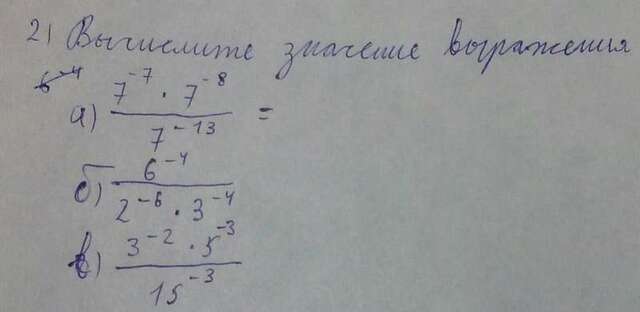 2) Вычислите значение выражения
а) 7⁻⁷ · 7⁻⁸ / 7⁻¹³ =
б) 6⁻⁴ / 2⁻⁶ · 3⁻⁴
в) 3⁻² · 5⁻³ / 15⁻³